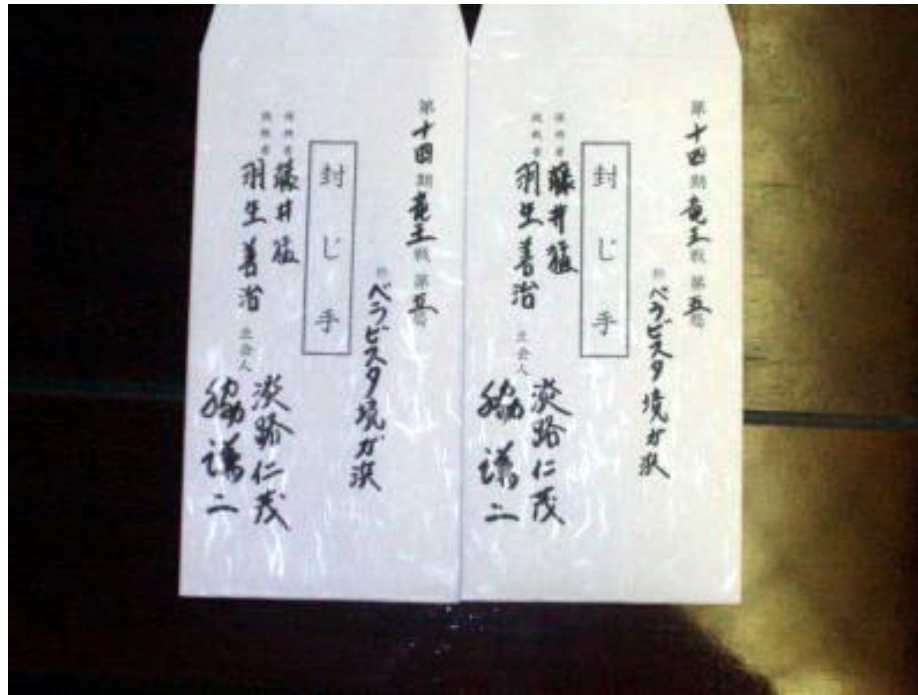 第十四期竜王戦 第五局
於 ベラビスタ境ガ浜
封じ手
保持者 藤井猛
挑戦者 羽生善治
立会人 淡路仁茂
脇謙二
第十四期竜王戦 第五局
於 ベラビスタ境ガ浜
封じ手
保持者 藤井猛
挑戦者 羽生善治
立会人 淡路仁茂
脇謙二